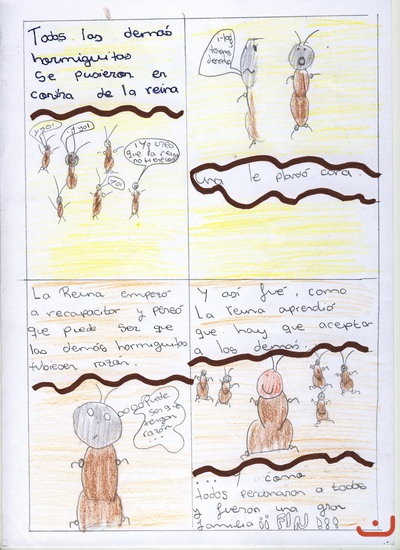 Todas las demás
hormiguitas
Se pusieron en
contra de la reina
¡y yo!
¡y yo!
¡Yo creo
que la reina
no tiene
yo
¡No
tienes
derecho!
una le plantó cara.
La Reina empezó
a recapacitar y pensó
que puede ser que
las demás hormiguitas
tubiesen razón.
Puede
ser que
tengan
razón
...
Y así fué, como
La reina aprendió
que hay que aceptar
a los demás.
... Y como
todos perdonaron a todos
y fueron una gran
familia ¡¡ FIN !!!